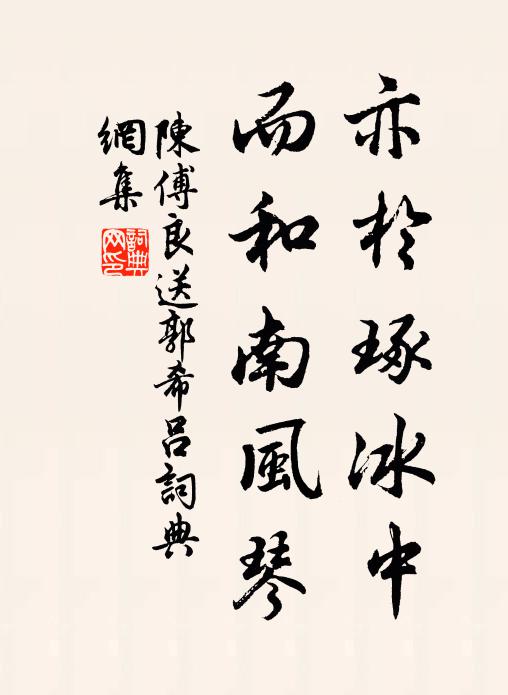 亦於琢冰中
而和南風琴
陳傅良送郭希呂詞典
網集
詞典
网印